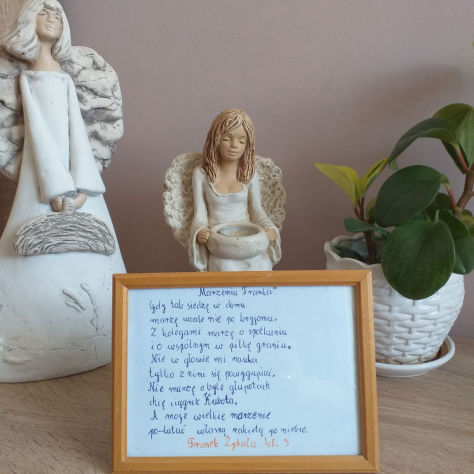 "Marzenia Franka"
Gdy tak siedzę w domu
marzę wcale nie po kryjomu.
Z kolegami marzę o spotkaniu
i o wspólnym w piłkę graniu.
Nie w głowie mi nauka
tylko z nimi się powygłupiać.
Nie marzę o byle głupotach
chcę ciągnik Kubota.
A moje wielkie marzenie
polatać własną rakietą po niebie.
Franek Zybała kl. 3